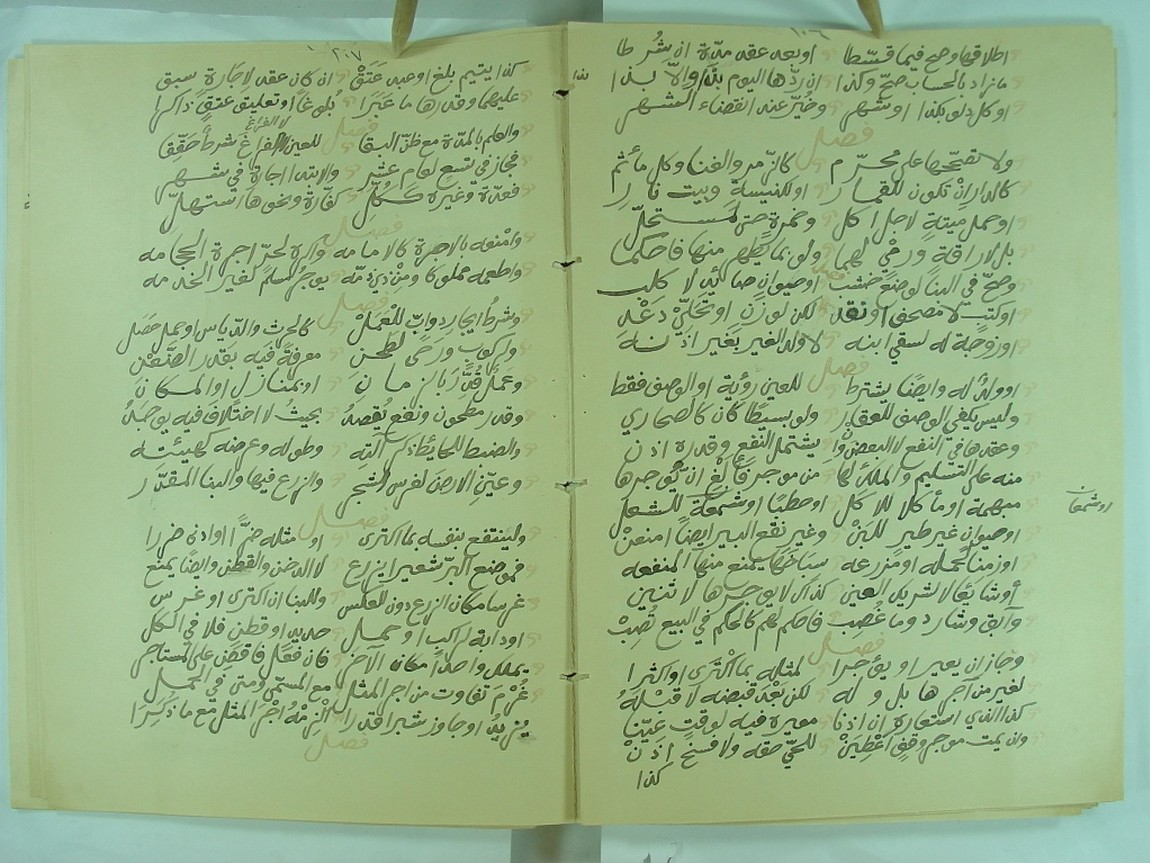 ١٠٦
اطلاقها وصح فيما قسطا او بعد عقد مدة ان شرطا
ما زاد بالحساب صح وكذا ان ردها اليوم بذا والا بذا
او كل دلو بكذا او شهر وخير عند انقضاء الشهر
فصل
ولا تصححها على محرم كالزمر والغنا وكل مأثم
كالدار ان تكون للقمار او لكنيسة وبيت نار
او حمل ميتة لاجل اكل وخمرة حتى لمستحل
بل لاراقة ورمي لهما ولو بما يطهر منها فاحكما
وصح في البنا لوضع خشب او حيوان صائد لا كلب
او كتب لا مصحف او نقد لكن لوزن او تحلي
او زوجة له لسقي ابنه لا ولد الغير بغير اذنه
فصل
او ولد له وايضا يشترط للعين رؤية او الوصف فقط
وليس يكفي الوصف للعقار ولو بسيطا كان كالصحاري
وعقدها في النفع لا البعض يشتمل النفع وقدره اذن
منه على التسليم والملك لها من موجر ان يوجرها
مبهمة او مأكلا للاكل او حطبا او شمعة للشعل
او حيوان غير طير للبن وغير نقع البير ايضا امنعن
او زمنا لحمله او مزرعه سباخها يمنع منها المنفعه
أو شائعا لا لشريك العين كذاك لا يوجرها لاثنين
وآبق وشارد وما غصب فاحكم لهم كالحكم في البيع تصب
فصل
وجاز ان يعير او يؤجرا لمثله بما اكترى او اكثرا
لغير من آجرها بل وله لكن بعد قبضه لا قبله
كذا الذي استعاره ان اذنا معيره فيه لوقت عينا
وان يمت موجر وقف اعطين للحي حقه ولا فسخ اذن
كذا
٢٠٧
كذا يتيم بلغ او عبد عتق ان كان عقد لاجارة سبق
عليهما وقدرها ما عبرا بلوغا او تعليق عتق ذاكرا
فصل
والعلم بالمدة مع ظن البقا للعين لا الفراغ شرط حققا
لا الفراغ
فجاز في تسع لعام عشر والابتدا اجارة في شهر
فعدة وغيره ككل كفارة ونحوها استهل
فصل
وامنعه بالاجرة كالامامه واكره لحر اجرة الحجامه
واطعمه مملوكا ومن ذي ذمه يوجر مسلم لغير الخدمه
فصل
وشرط ايجار دواب للعمل كالحرث والدياس او عمل حصل
ولركوب ورحى لطحن معرفة فيه بقدر
وعمل قدر بالزمان او بمنازل او المكان
وقدر مطحون ونفع يقصد بحيث لا اختلاف فيه يوجد
والضبط للحائط ذكر آلته وطوله وعرضه كهيئته
وعين الارض لغرس الشجر والزرع فيها والبنا المقدر
فصل
ولينتفع بنفسه بما اكترى او مثله ضرا او ادنى ضررا
فموضع البر شعيرا يزرع لا الدخن والقطن وايضا يمنع
غرسا مكان الزرع دون العكس وللبنا ان اكترى او غرس
او دابة لراكب او حمل حديد او قطن فلا في الكل
يملك واحدا مكان الآخر فان فعل فاقض على المستاجر
غرم تفاوت من اجر المثل مع المسمى ومتى في الحمل
يزيد او جاوز شبرا قدرا الزمه اجر المثل مع ما ذكرا
فصل